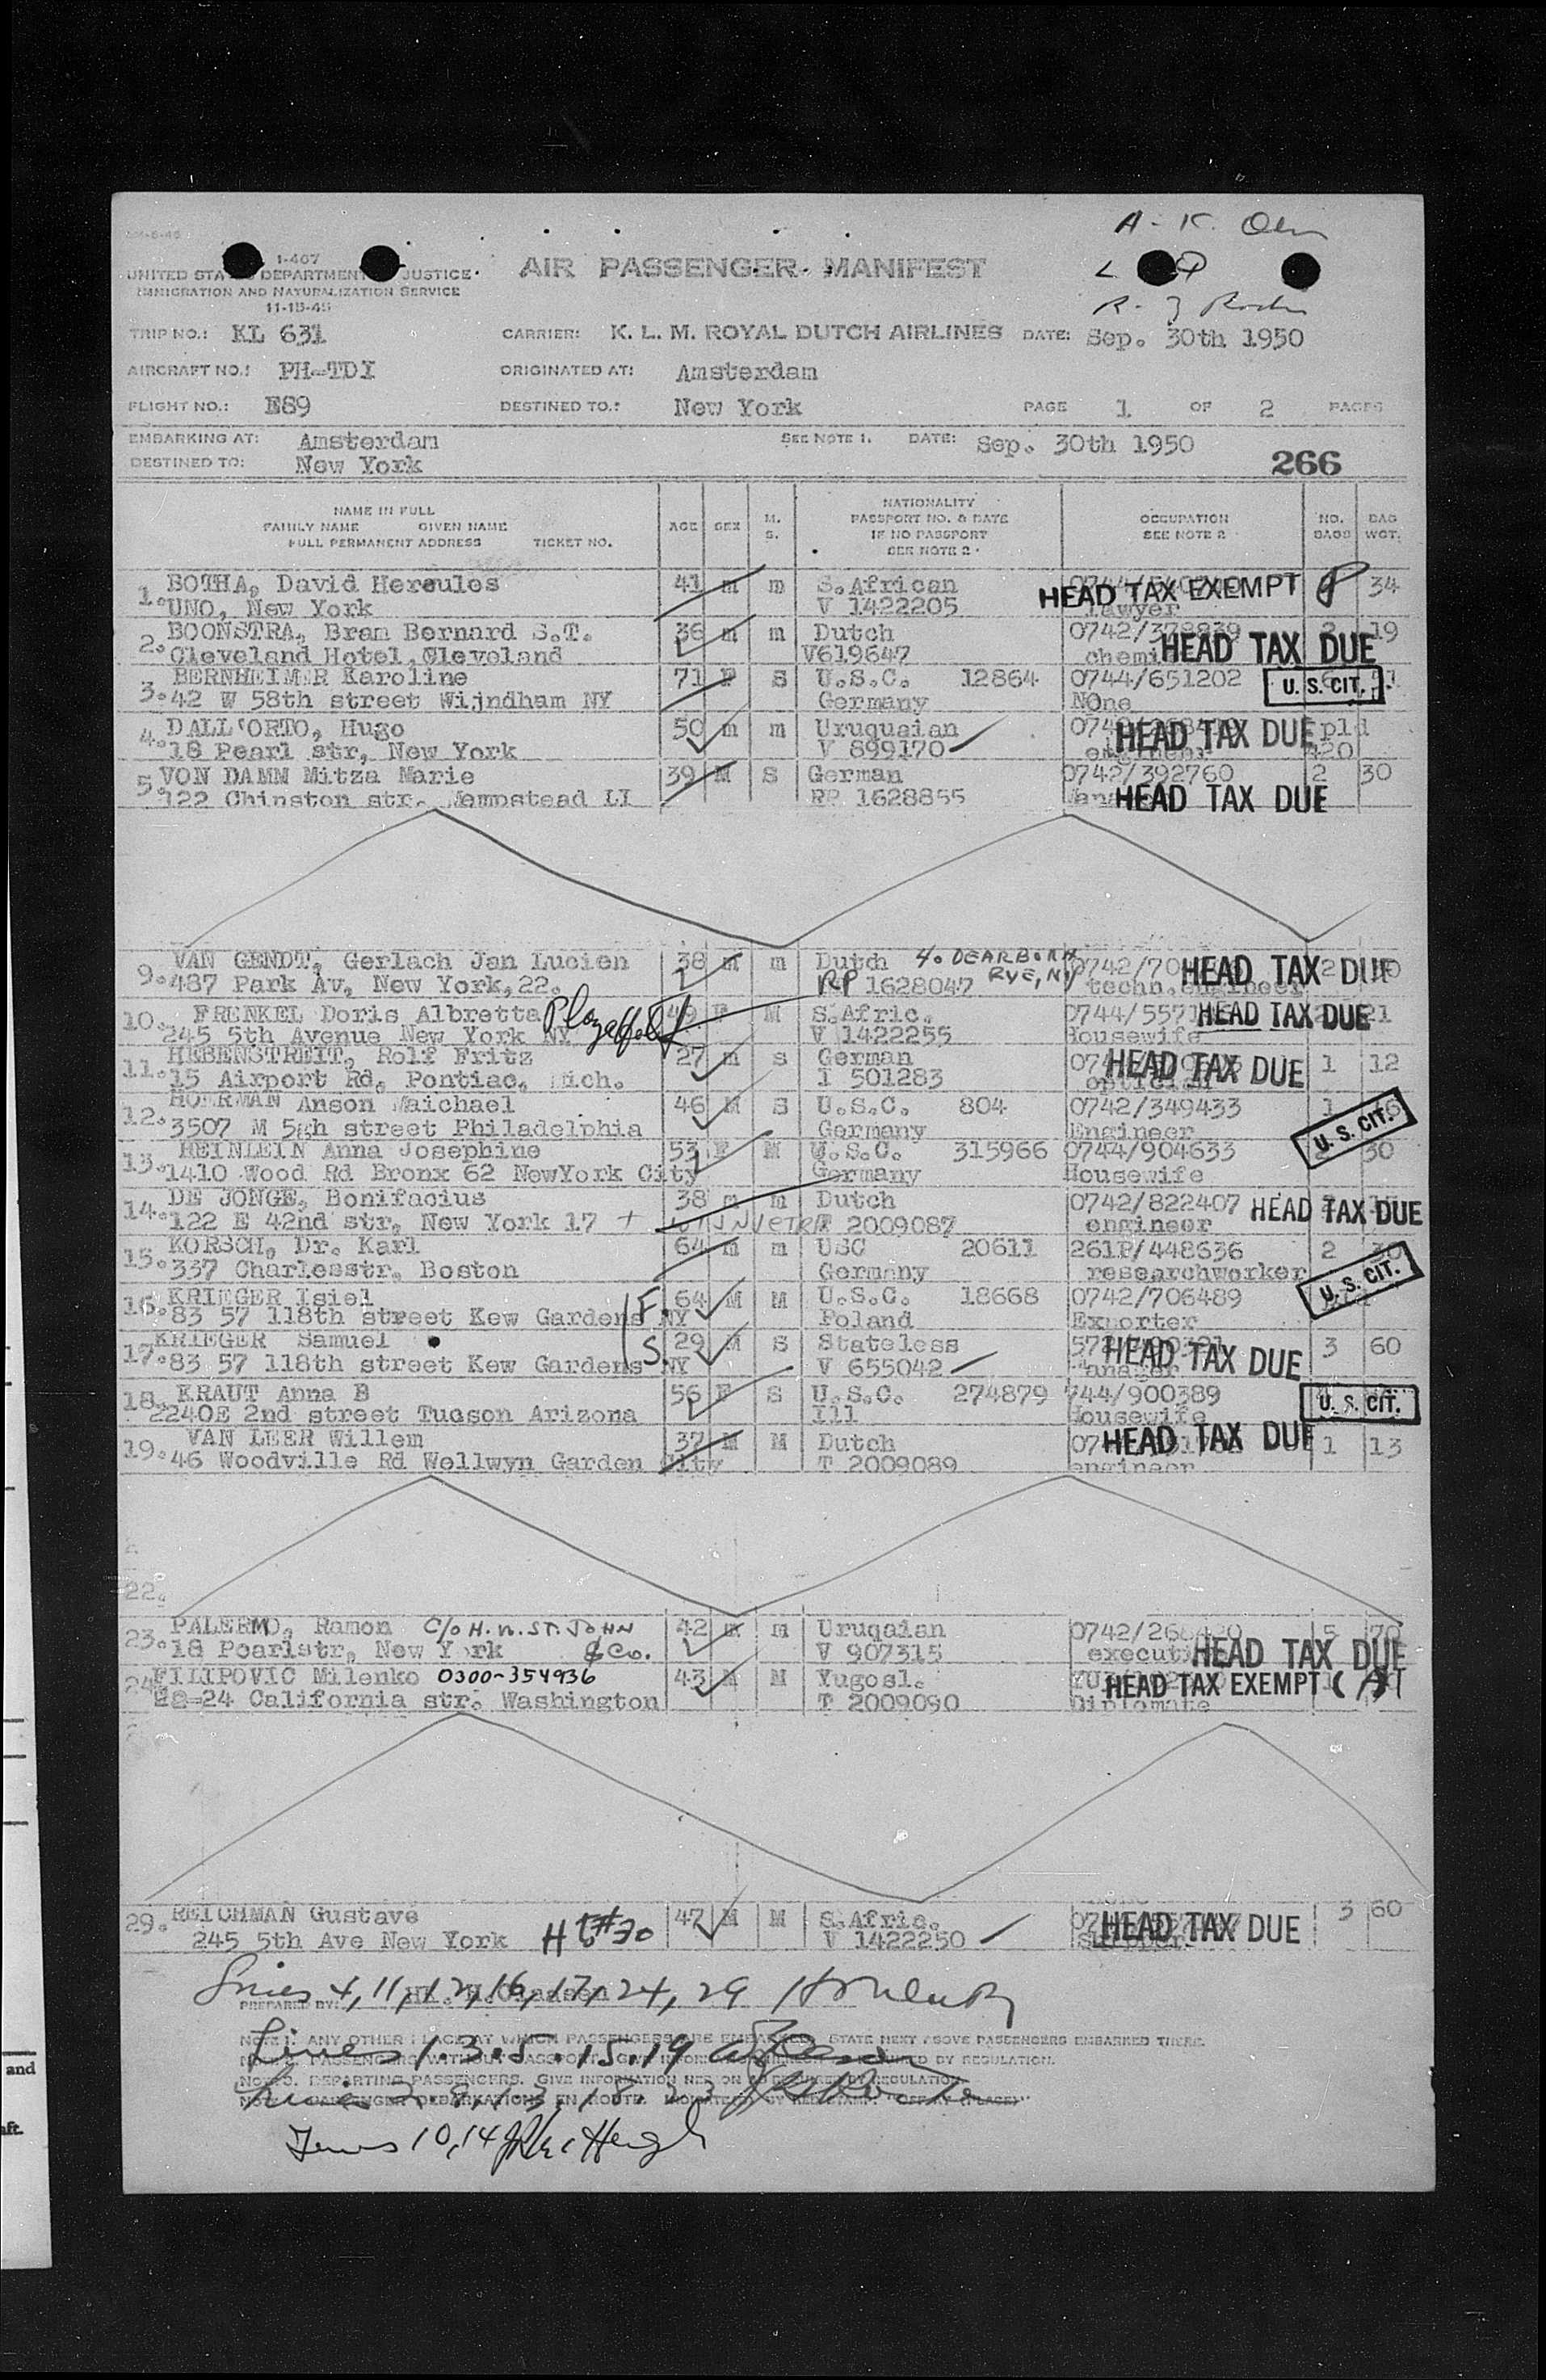 A. K.
1-407
UNITED STATES DEPARTMENT JUSTICE
IMMIGRATION AND NATURALIZATION SERVICE
11-15-45
AIR PASSENGER MANIFEST
TRIP NO.: KL 631 CARRIER: K. L. M. ROYAL DUTCH AIRLINES DATE: Sep. 30th 1950
AIRCRAFT NO.: PH-TDI ORIGINATED AT: Amsterdam
FLIGHT NO.: E89 DESTINED TO.: New York PAGE 1 OF 2 PAGES
EMBARKING AT: Amsterdam SEE NOTE 1. DATE: Sep. 30th 1950
DESTINED TO: New York 266
NAME IN FULL
FAMILY NAME GIVEN NAME
FULL PERMANENT ADDRESS TICKET NO.
AGE SEX M. S.
NATIONALITY
PASSPORT NO. & DATE
IF NO PASSPORT
SEE NOTE 2
OCCUPATION
SEE NOTE 2
NO. BAGS BAG WGT.
1. BOTHA, David Hercules 41 m m S.African HEAD TAX EXEMPT 34
UNO, New York V 1422205 lawyer
2. BOONSTRA, Bram Bernard S.T. 36 m m Dutch 0742/378839 2 19
Cleveland Hotel, Cleveland V619647 HEAD TAX DUE
3. BERNHEIMER Karoline 71 F S U.S.C. 12864 0744/651202 U. S. CIT.
42 W 58th street Wijndham NY Germany NOne
4. DALL'ORTO, Hugo 50 m m Uruquaian HEAD TAX DUE
18 Pearl str, New York V 899170 engineer
5. VON DAMM Mitza Marie 39 M S German 0742/392760 2 30
122 Chinston str. Hempstead LI RP 1628855 HEAD TAX DUE
9. VAN GENDT, Gerlach Jan Lucien 38 m m Dutch 4. DEARBORN HEAD TAX DUE
487 Park Av, New York,22. RP 1628047 RYE, NY techn.engineer
10. FRENKEL Doris Albretta 49 F M S.Afric. HEAD TAX DUE 21
245 5th Avenue New York NY V 1422255 Housewife
11. HEBENSTREIT, Rolf Fritz 27 m s German HEAD TAX DUE 1 12
15 Airport Rd, Pontiac, Mich. T 501283 optician
12. HOERMAN Anson Maichael 46 M S U.S.C. 804 0742/349433 1 46 U. S. CIT.
3507 M 5th street Philadelphia Germany Engineer
13. HEINLEIN Anna Josephine 53 F M U.S.C. 315966 0744/904633 30
1410 Wood Rd Bronx 62 NewYork City Germany Housewife
14. DE JONGE, Bonifacius 38 m m Dutch 0742/822407 HEAD TAX DUE
122 E 42nd str, New York 17 T 2009087 engineer
15. KORSCH, Dr. Karl 64 m m USC 20611 261P/448636 2 30
337 Charlesstr, Boston Germany researchworker U. S. CIT.
16. KRIEGER Isiel F 64 M M U.S.C. 18668 0742/706489
83 57 118th street Kew Gardens NY Poland Exporter
17. KRIEGER Samuel S 29 M S Stateless HEAD TAX DUE 3 60
83 57 118th street Kew Gardens NY V 655042 Manager
18. KRAUT Anna B 56 F S U.S.C. 274879 744/900389 U. S. CIT.
2240E 2nd street Tucson Arizona Ill Housewife
19. VAN LEER Willem 37 M M Dutch HEAD TAX DUE 1 13
46 Woodville Rd Wellwyn Garden City T 2009089 engineer
22.
23. PALERMO, Ramon C/O H. W. ST. JOHN 42 m m Uruqaian 5 70
18 Pearlstr, New York & Co. V 907315 HEAD TAX DUE
24. FILIPOVIC Milenko 0300-354936 43 M M Yugosl. HEAD TAX EXEMPT (A)
22-24 California str. Washington T 2009090 Diplomate
29. REICHMAN Gustave 47 M M S.Afric. HEAD TAX DUE 3 60
245 5th Ave New York V 1422250
Lines 4, 11, 12, 16, 17, 24, 29
PREPARED BY:
NOTE 1. ANY OTHER PLACE AT WHICH PASSENGERS ARE EMBARKED, STATE NEXT ABOVE PASSENGERS EMBARKED THERE.
Lines 1. 3. 5. 15. 19
Lines 2, 9, 13, 18, 23
Lines 10, 14
and
aft.